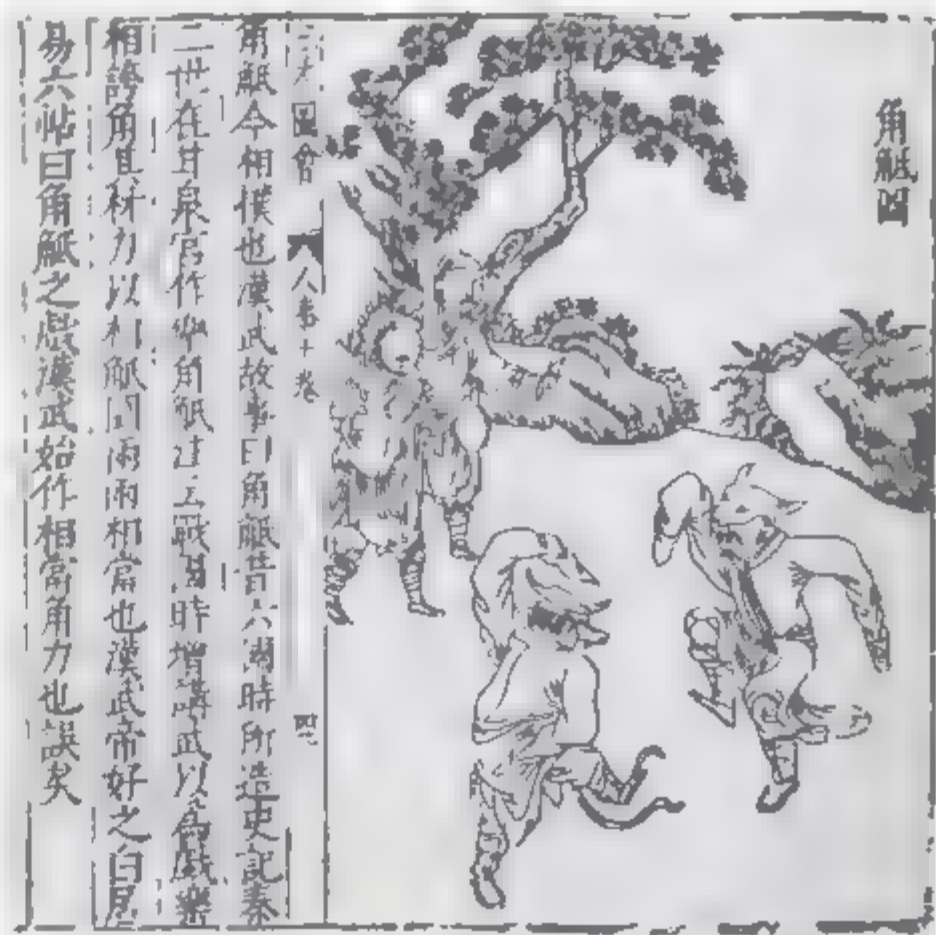 角觝圖
圖會 人事十卷
角觝今相撲也漢武故事曰角觝昔六國時所造史記秦
二世在甘泉宮作樂角觝註云戰國時增講武以為戲樂
相誇角其材力以相觝鬭兩兩相當也漢武帝好之白居
易六帖曰角觝之戲漢武始作相當角力也誤矣